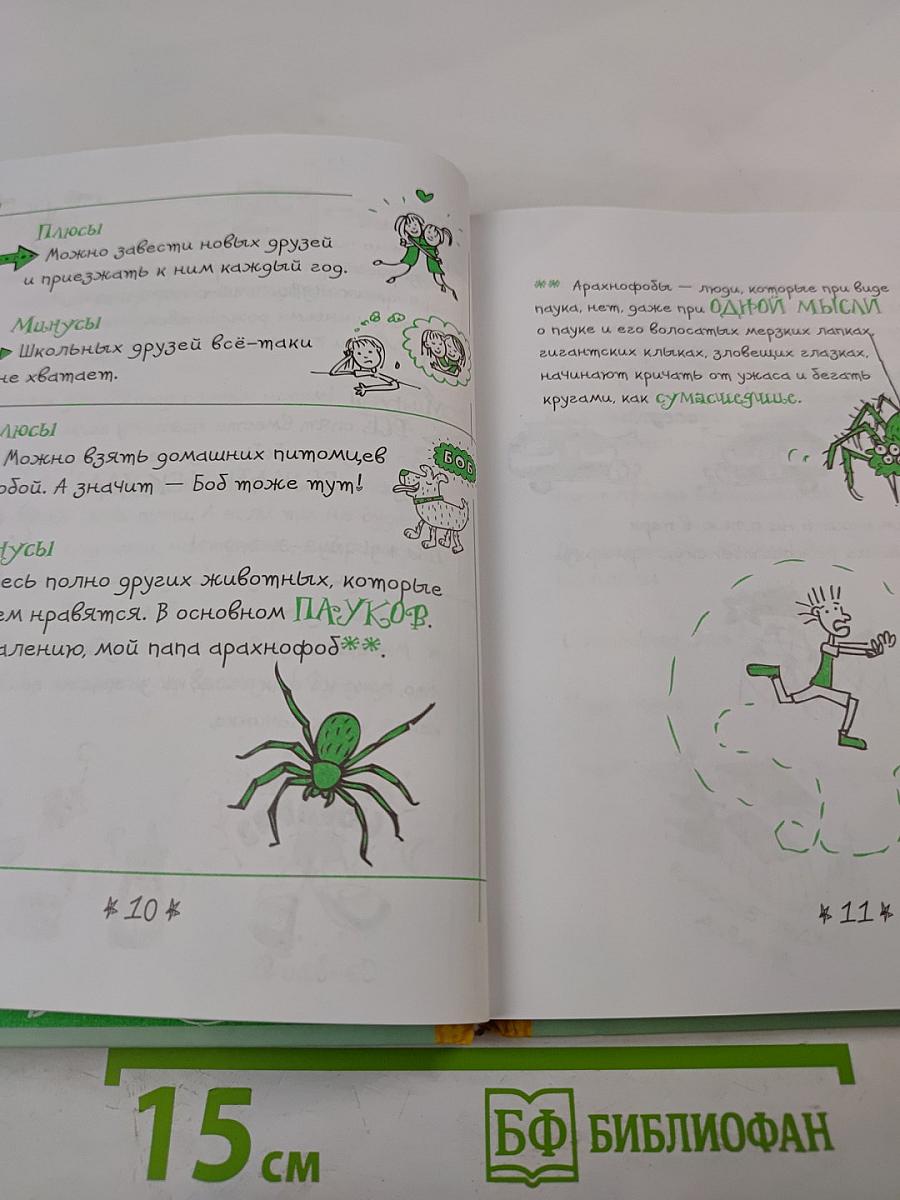 Плюсы
Можно завести новых друзей
и приезжать к ним каждый год.
Минусы
Школьных друзей всё-таки
не хватает.
люсы
Можно взять домашних питомцев
обой. А значит — Боб тоже тут!
БОБ
нусы
есь полно других животных, которые
ем нравятся. В основном ПАУКОВ.
алению, мой папа арахнофоб**.
* 10 *
** Арахнофобы — люди, которые при виде
паука, нет, даже при ОДНОЙ МЫСЛИ
о пауке и его волосатых мерзких лапках,
гигантских клыках, зловещих глазках,
начинают кричать от ужаса и бегать
кругами, как сумасшедшие.
* 11 *
15 см
БФ БИБЛИОФАН